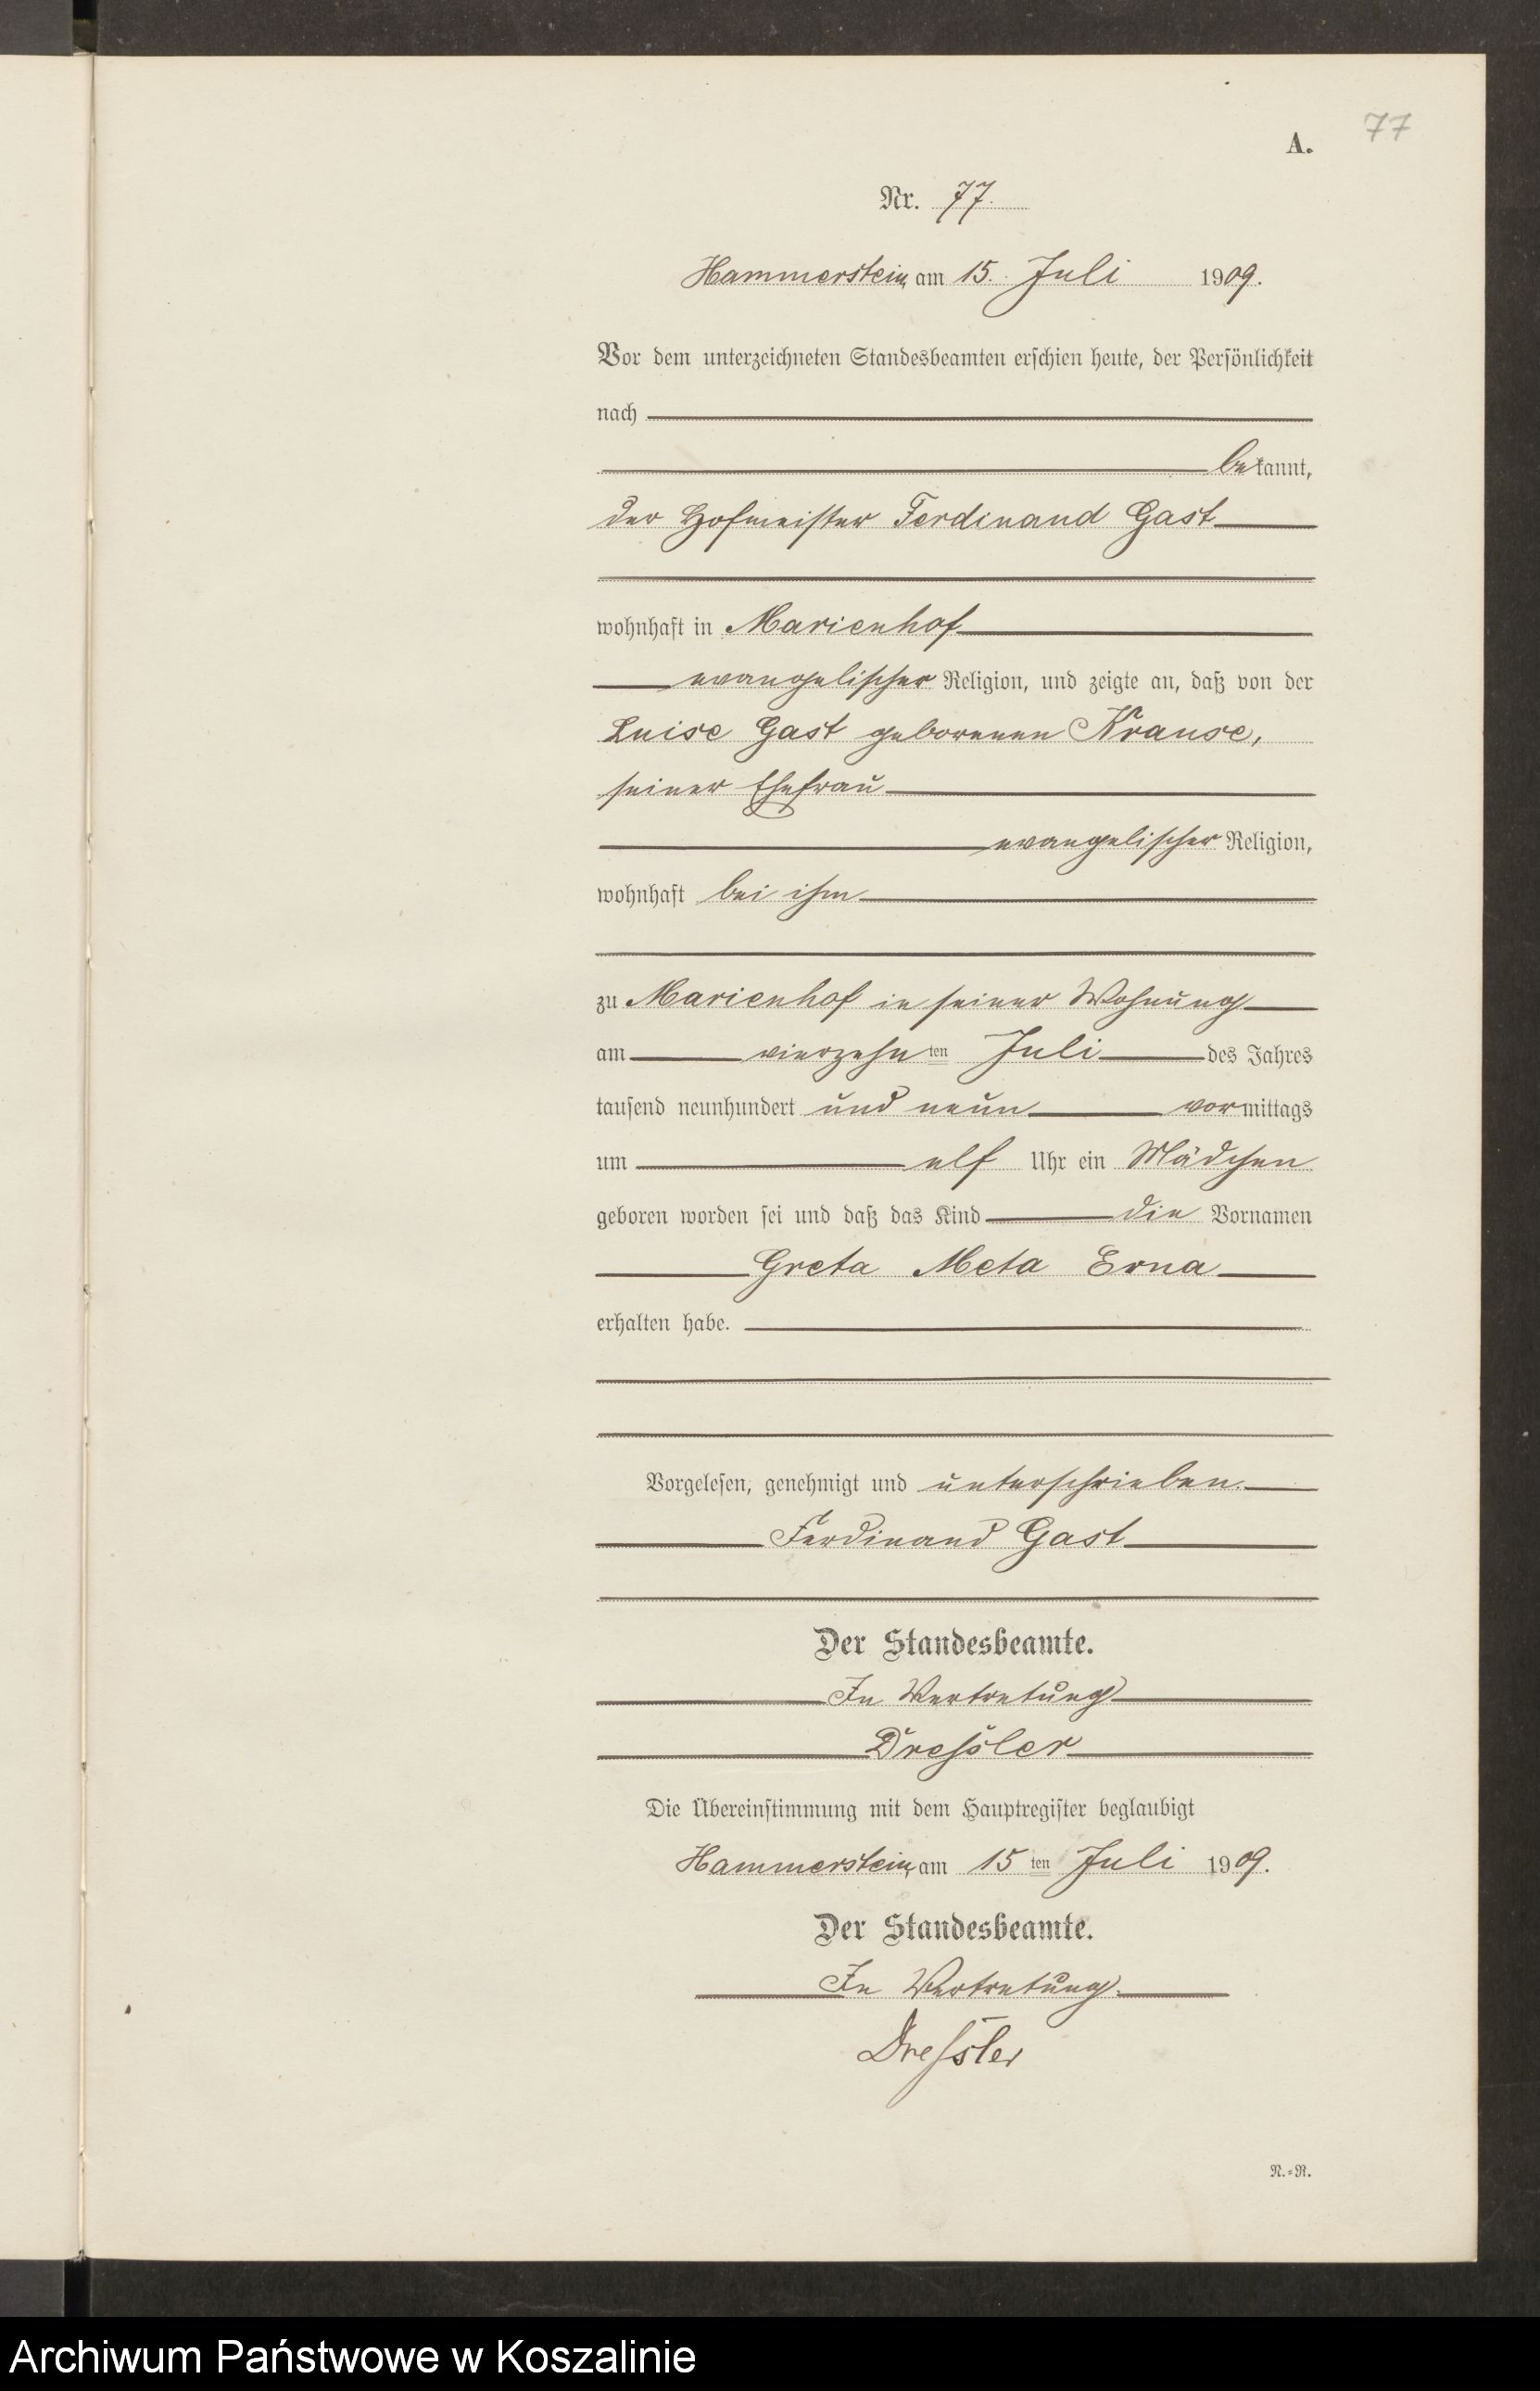 77
A.
Nr. 77.
Hammerstein, am 15. Juli 1909.
Vor dem unterzeichneten Standesbeamten erschien heute, der Persönlichkeit
nach
bekannt,
der Hofmeister Ferdinand Gast
wohnhaft in Marienhof
evangelischer Religion, und zeigte an, daß von der
Luise Gast geborenen Krause,
seiner Ehefrau
evangelischer Religion,
wohnhaft bei ihm
zu Marienhof in seiner Wohnung
am vierzehnten Juli des Jahres
tausend neunhundert und neun vormittags
um elf Uhr ein Mädchen
geboren worden sei und daß das Kind die Vornamen
Greta Meta Erna
erhalten habe.
Vorgelesen, genehmigt und unterschrieben.
Ferdinand Gast
Der Standesbeamte.
In Vertretung
Dressler
Die Übereinstimmung mit dem Hauptregister beglaubigt
Hammerstein, am 15ten Juli 1909.
Der Standesbeamte.
In Vertretung.
Dressler
N.=R.
Archiwum Państwowe w Koszalinie